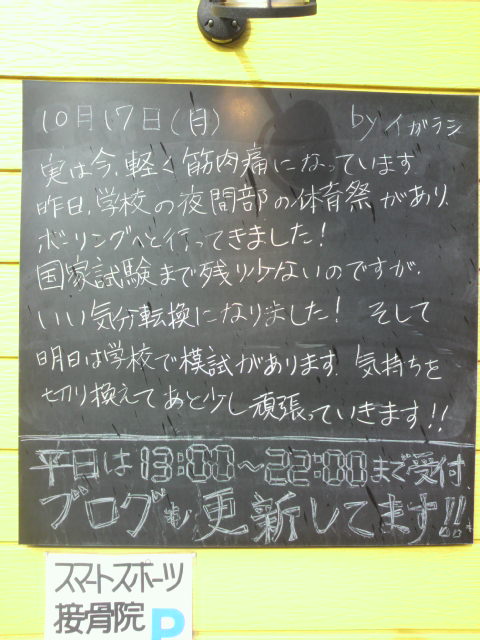 10月17日(月) by イガラシ
実は今、軽く筋肉痛になっています
昨日、学校の夜間部の体育祭があり、
ボーリングへと行ってきました!
国家試験まで残り少ないのですが、
いい気分転換になりました! そして
明日は学校で模試があります。気持ちを
切り換えてあと少し頑張っていきます!!
平日は13:00〜22:00まで受付
ブログも更新してます!!
スマートスポーツ
接骨院 P